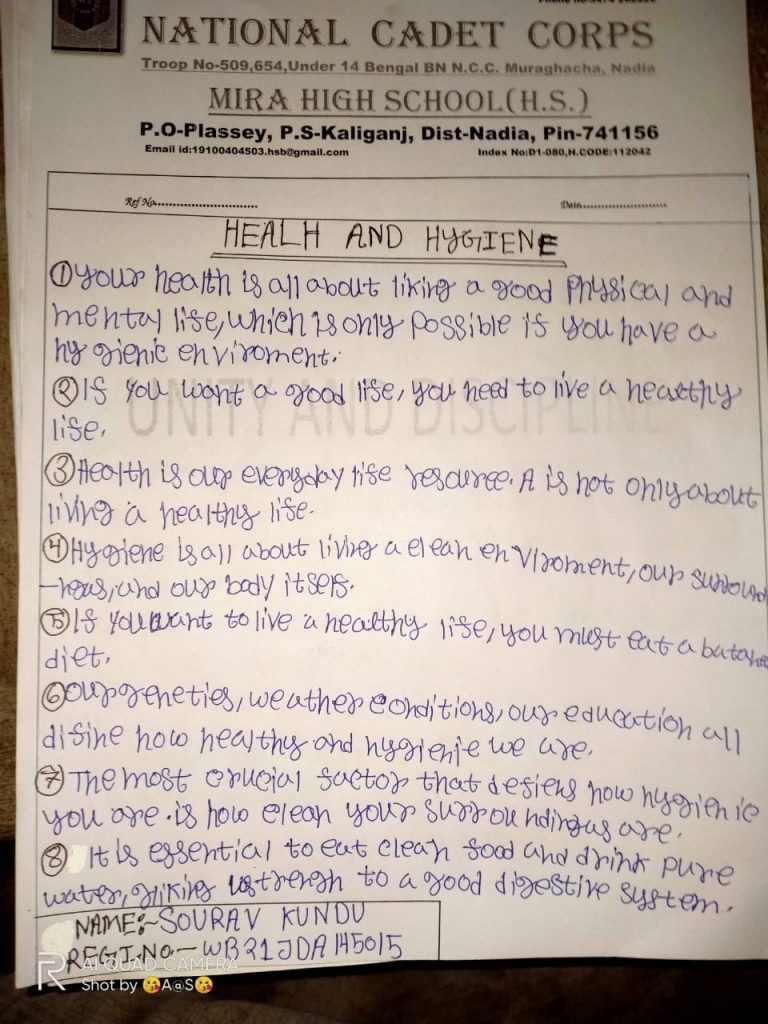 NATIONAL CADET CORPS
Troop No-509,654,Under 14 Bengal BN N.C.C. Muraghacha, Nadia
MIRA HIGH SCHOOL(H.S.)
P.O-Plassey, P.S-Kaliganj, Dist-Nadia, Pin-741156
Email id:19100404503.hsb@gmail.com Index No:D1-080,H.CODE:112042
Ref No............................ Date........................
HEALH AND HYGIENE
① Your health is all about liking a good physical and
mental life, which is only possible if you have a
hygienic enviroment.
② If you want a good life, you need to live a healthy
life.
UNITY AND DISCIPLINE
③ Health is our everyday life resource. A is not only about
living a healthy life.
④ Hygiene is all about living a clean enviroment, our surround
-neas, and our body itself.
⑤ If you want to live a healthy life, you must eat a balance
diet.
⑥ Our geneties, weather conditions, our education all
difine how healthy and hygienie we are.
⑦ The most crucial factor that defiens how hygienic
you are. is how clean your surroundingus are.
⑧ It is essential to eat clean food and drink pure
water, to a good digestive system.
NAME:- SOURAV KUNDU
REGT.NO:- WB21JDA145015
AI QUAD CAMERA
Shot by 😘A@S😘